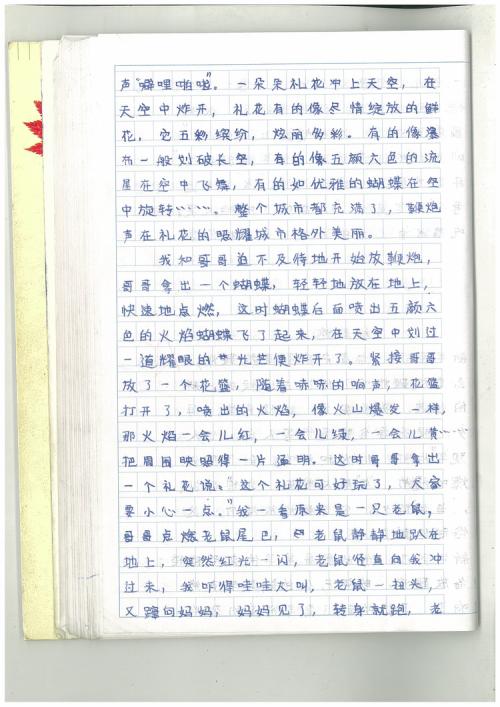 声"噼哩啪啦"。一朵朵礼花冲上天空，在
天空中炸开，礼花有的像尽情绽放的鲜
花，它五彩缤纷，炫丽多彩。有的像瀑
布一般划破长空，有的像五颜六色的流
星在空中飞舞，有的如优雅的蝴蝶在空
中旋转……。整个城市都充满了，鞭炮
声在礼花的照耀城市格外美丽。
我和哥哥迫不及待地开始放鞭炮，
哥哥拿出一个蝴蝶，轻轻地放在地上，
快速地点燃，这时蝴蝶后面喷出五颜六
色的火焰蝴蝶飞了起来，在天空中划过
一道耀眼的光芒便炸开了。紧接哥哥
放了一个花篮，随着哧哧的响声，花篮
打开了，喷出的火焰，像火山爆发一样，
那火焰一会儿红，一会儿绿，一会儿黄……
把周围映照得一片通明。这时哥哥拿出
一个礼花说："这个礼花可好玩了，大家
要小心一点。"我一看原来是一只老鼠，
哥哥点燃老鼠尾巴，老鼠静静地趴在
地上，突然红光一闪，老鼠径直向我冲
过来，我吓得哇哇大叫，老鼠一扭头，
又蹿向妈妈，妈妈见了，转身就跑，老